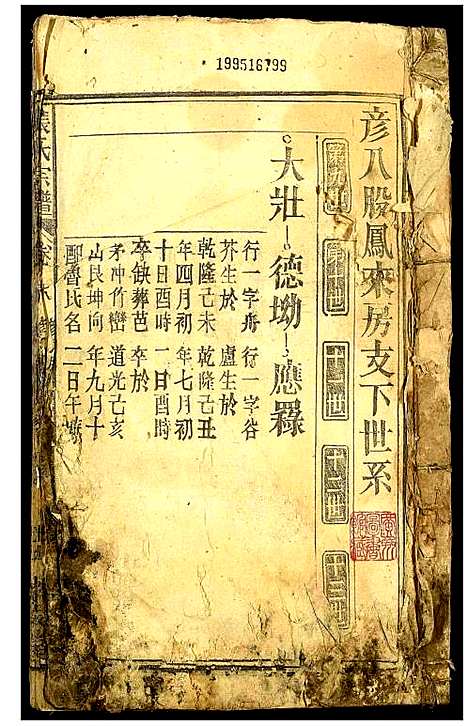 199516799
彦八股鳳來房支下世系
第九世
第十世
十一世
十二世
十三世
大壯
德坳
應羅
行一字舟
芥生於
乾隆己未
年四月初
十日酉時
卒缺葬芭
茅冲竹
山艮坤向
配曾氏名
行一字谷
盧生於
乾隆己丑
年七月初
一日酉時
卒於
道光己亥
年九月十
二日午時
氏宗譜